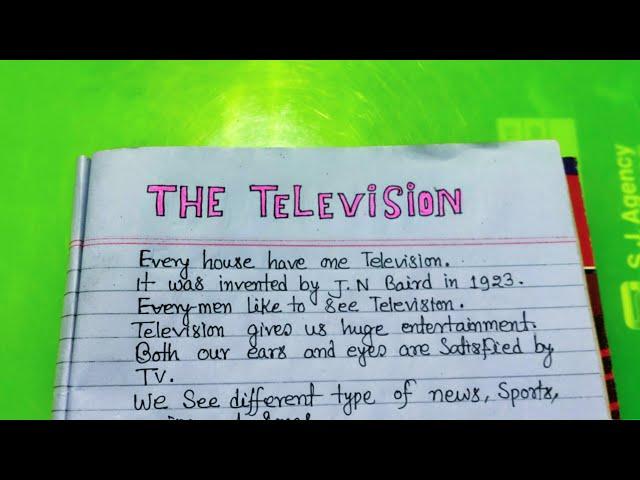 THE TELEVISION
Every house have one Television.
It was invented by J.N Baird in 1923.
Every men like to see Television.
Television gives us huge entertainment.
Both our ears and eyes are Satisfied by
TV.
We See different type of news, Sports,
S J Agency